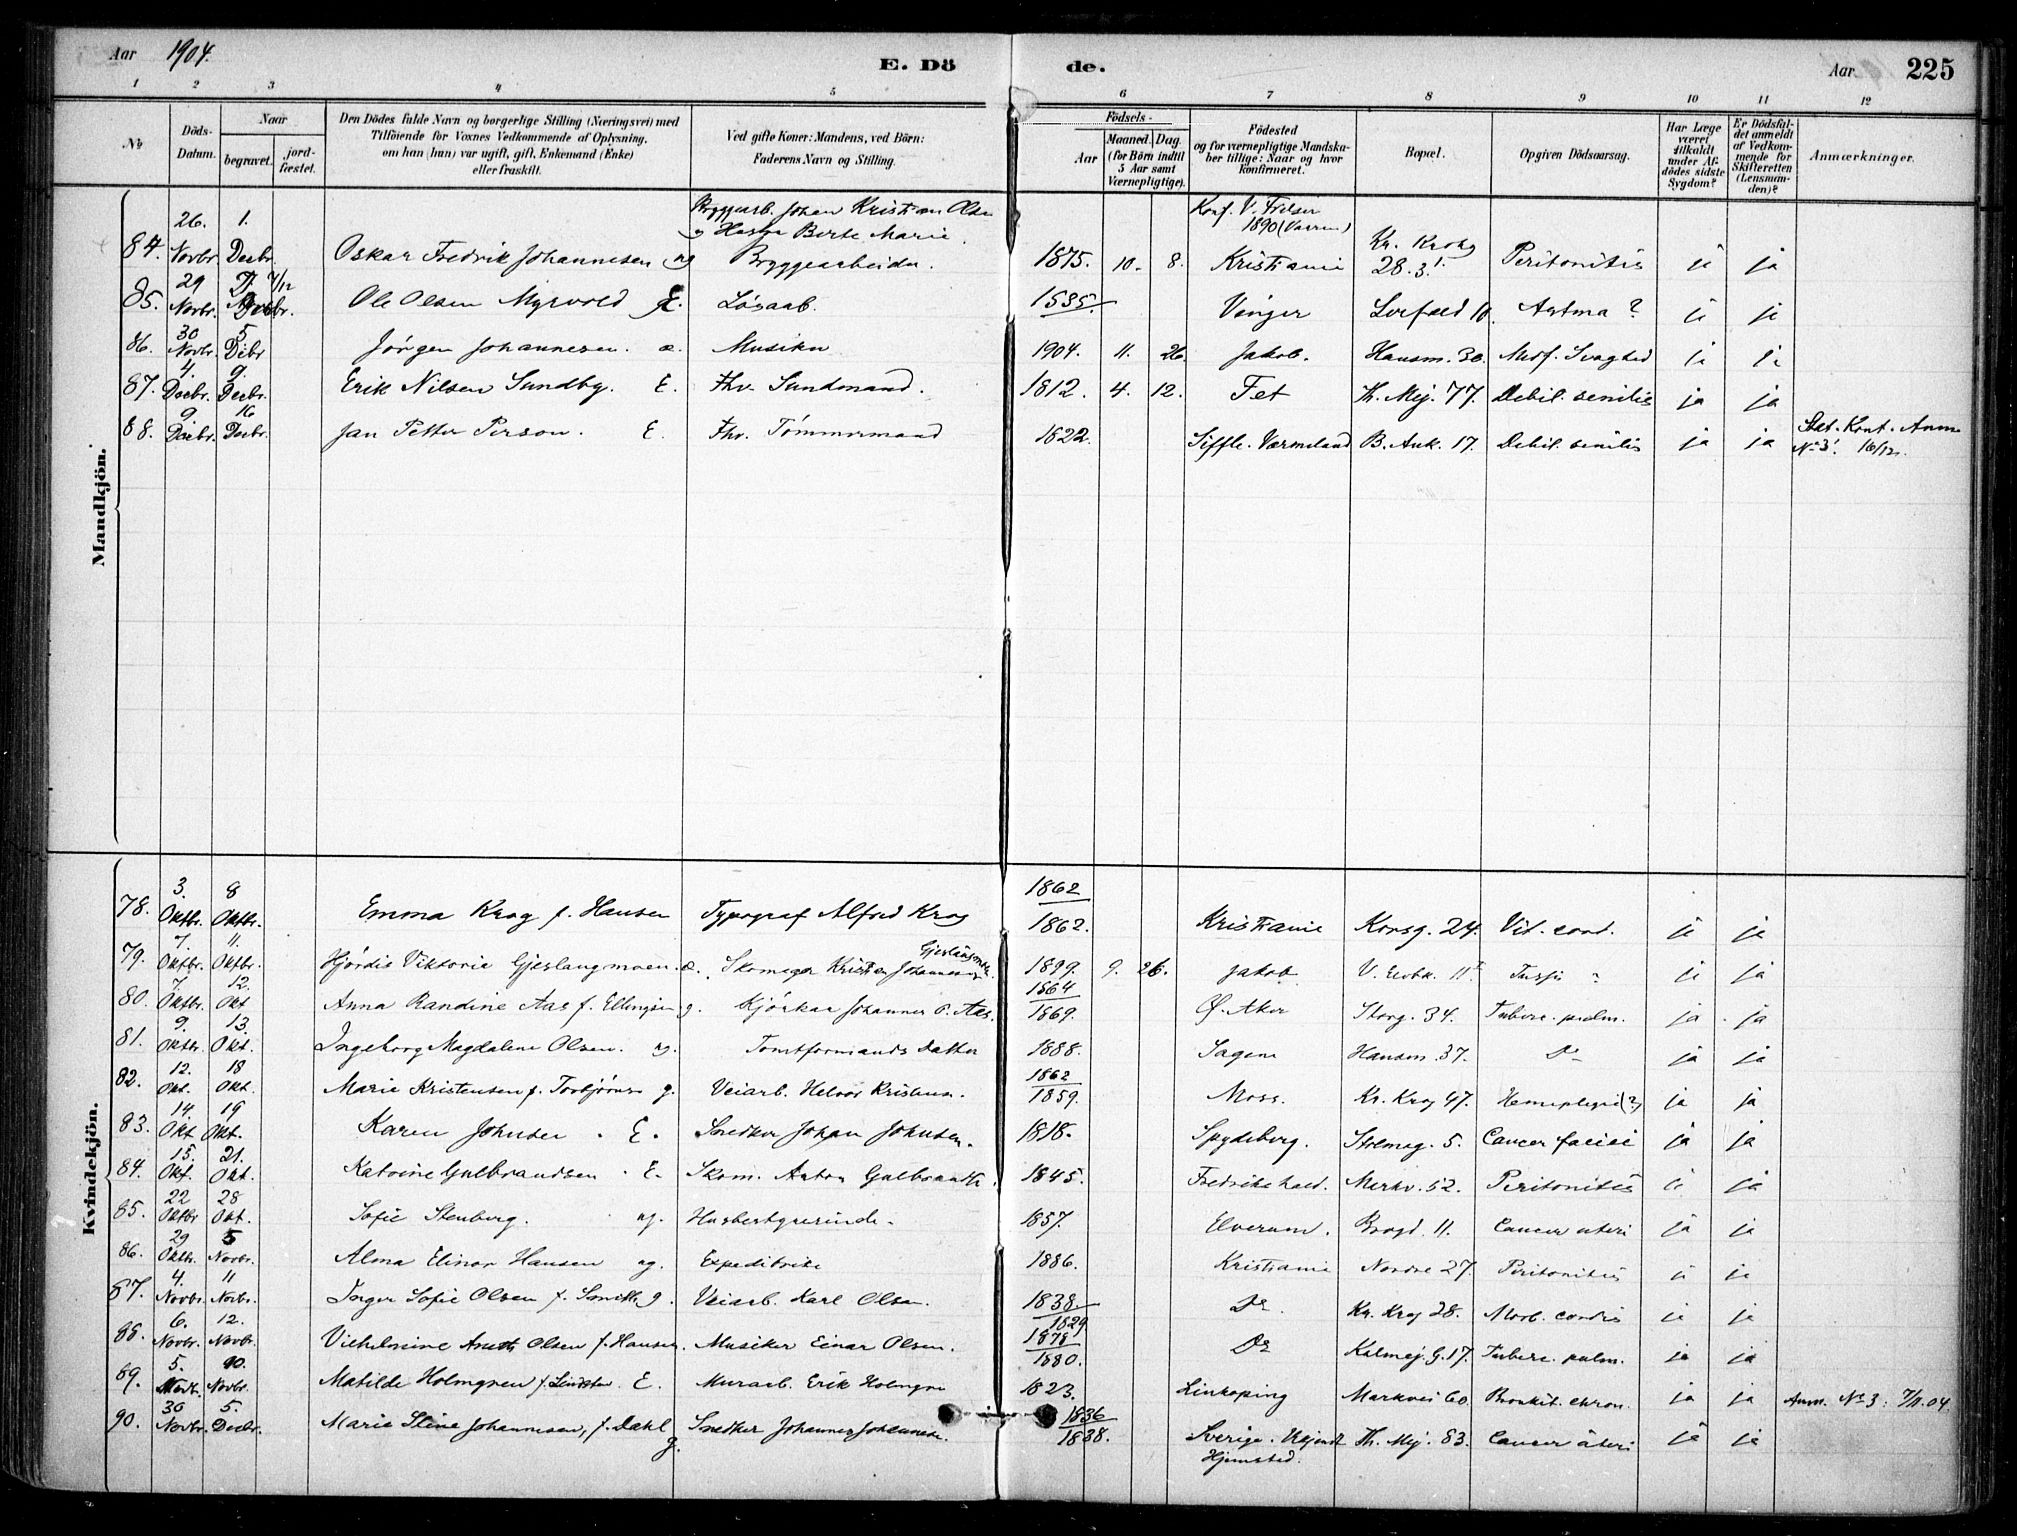 Aar 1904.
E. Dö de.
Aar 225
1 2 3 4 5 6 7 8 9 10 11 12
No
Döds-Datum.
Naar
begravet.
jord-fæstet.
Den Dödes fulde Navn og borgerlige Stilling (Næringsvei) med
Tilföiende for Voxnes Vedkommende af Oplysning,
om han (hun) var ugift, gift, Enkemand (Enke)
eller fraskilt.
Ved gifte Koner: Mandens, ved Börn:
Faderens Navn og Stilling.
Födsels-
Aar
Maaned. Dag.
(for Börn indtil
5 Aar samt
Værnepligtige).
Födested
og for værnepligtige Mandska-
ber tillige: Naar og hvor
konfirmeret.
Bopæl.
Opgiven Dödsaarsag.
Har Læge
været
tilkaldt
under Af-
dödes sidste
Sygdom?
Er Dödsfal-
det anmeldt
af Vedkom-
mende for
Skifteretten
(Lensman-
den)?
Anmærkninger.
Mandkjön.
Bryggearb. Johan Kristian Olsen
og Hustru Berte Marie.
Konf. V. Frelser
1890 (Vaaren)
84. 26. Novbr. 1. Decbr. Oskar Fredrik Johannesen ug Bryggearbeider. 1875. 10. 8. Kristiania Kr. Krohg 28.3! Peritonitis ja ja
85. 29 Novbr. 7/12 Decbr. Ole Olsen Myrvold E. Løsarb. 1835. Vinger Lerfald 10. Astma? ja ja
86. 30 Novbr. 5 Dcbr Jørgen Johannesen. æ. Musiker 1904. 11. 26. Jakob. Hausm. 30. Medf. Svaghed ja ja
87. 4. Decbr. 9. Decbr. Erik Nilsen Sundby. E. Fhv. Sundmand. 1812. 4. 12. Fet Th. Mej. 77. Debil. senilis ja ja
88. 9. Decbr. 16 Decbr. Jan Petter Person. E. Fhv. Tømmermand 1822. Siffle. Værmeland B. Ank. 17. Debil. senilis ja ja Skt. Kont. Anm
No 3! 16/12.
Kvindekjön.
78. 3. Oktbr. 8 Oktbr. Emma Krog f. Hansen Typograf Alfred Krog 1862 1862. Kristiania Korsg. 24. Vit. cord. ja ja
79. 7. Oktbr. 11. Oktbr. Hjördis Viktoria Gjeslangmoen æ. Skomager Kristian Johannesen 1899. 9. 26. Jakob. V. Elvbk. 11 Tussis ja ja
80. 7. Oktbr. 12. Okt Anna Randine Aas f. Ellingsen g. Kjörkar Johannes P. Aas. 1864 1869. Ø. Aker Storg. 34. Tuberc. pulm. ja ja
81. 9. Oktbr. 13. Okt. Ingeborg Magdalene Olsen. ug. Tomtformands Datter 1888. Sagene Hausm. 37. Do ja ja
82. 12. Okt. 18 Okt. Marie Kristensen f. Torbjørns g. Veiarb. Helvor Kristensen. 1862 1859. Moss. Kr. Krog 47. Hemiplegi (?) ja ja
83. 14. Okt 19 Okt. Karen Johnsen. E. Snedker Johan Johnsen. 1818. Spydeberg. Stolmag. 5. Cancer faciei ja ja
84. 15. Okt. 21. Okt. Katrine Gulbrandsen. E. Skom. Anton Gulbrandsen. 1845. Fredrikshald. Merkv. 52. Peritonitis ja ja
85. 22 Oktbr 28 Okt. Sofie Stenberg. ug. Husbestyrerinde. 1857. Elverum. Brogd. 11. Cancer uteri ja ja
86. 29 Oktbr. 5 Novbr. Alma Elinor Hansen ug. Expeditrice 1886. Kristiania Nordre 27. Peritonitis ja ja
87. 4. Novbr. 11 Novbr. Inger Sofie Olsen f. Smith g. Veiarb. Karl Olsen. 1838 1829 Do Kr. Krog 28. Morb. cordis ja ja
88. 6. Novbr. 12. Novbr. Vilhelmine Anette Olsen f. Hansen. Musiker Einar Olsen. 1878 1880. Do Kalmej. G. 17. Tuberc. pulm. ja ja
89. 5. Novbr. 10. Novbr. Matilde Holmgren f. Lindsten. E. Murarb. Erik Holmgren 1823. Linkøping Markvei 60. Bronkit. chron. ja ja Anm. No 3. 7/11.04.
90. 30 Novbr. 5. Decbr. Marie Stine Johannesen, f. Dahl g. Snedker Johannes Johannesen. 1836 1838. Sverige. Ukjendt Hjemsted. Th. Mej. 83. Cancer uteri ja ja